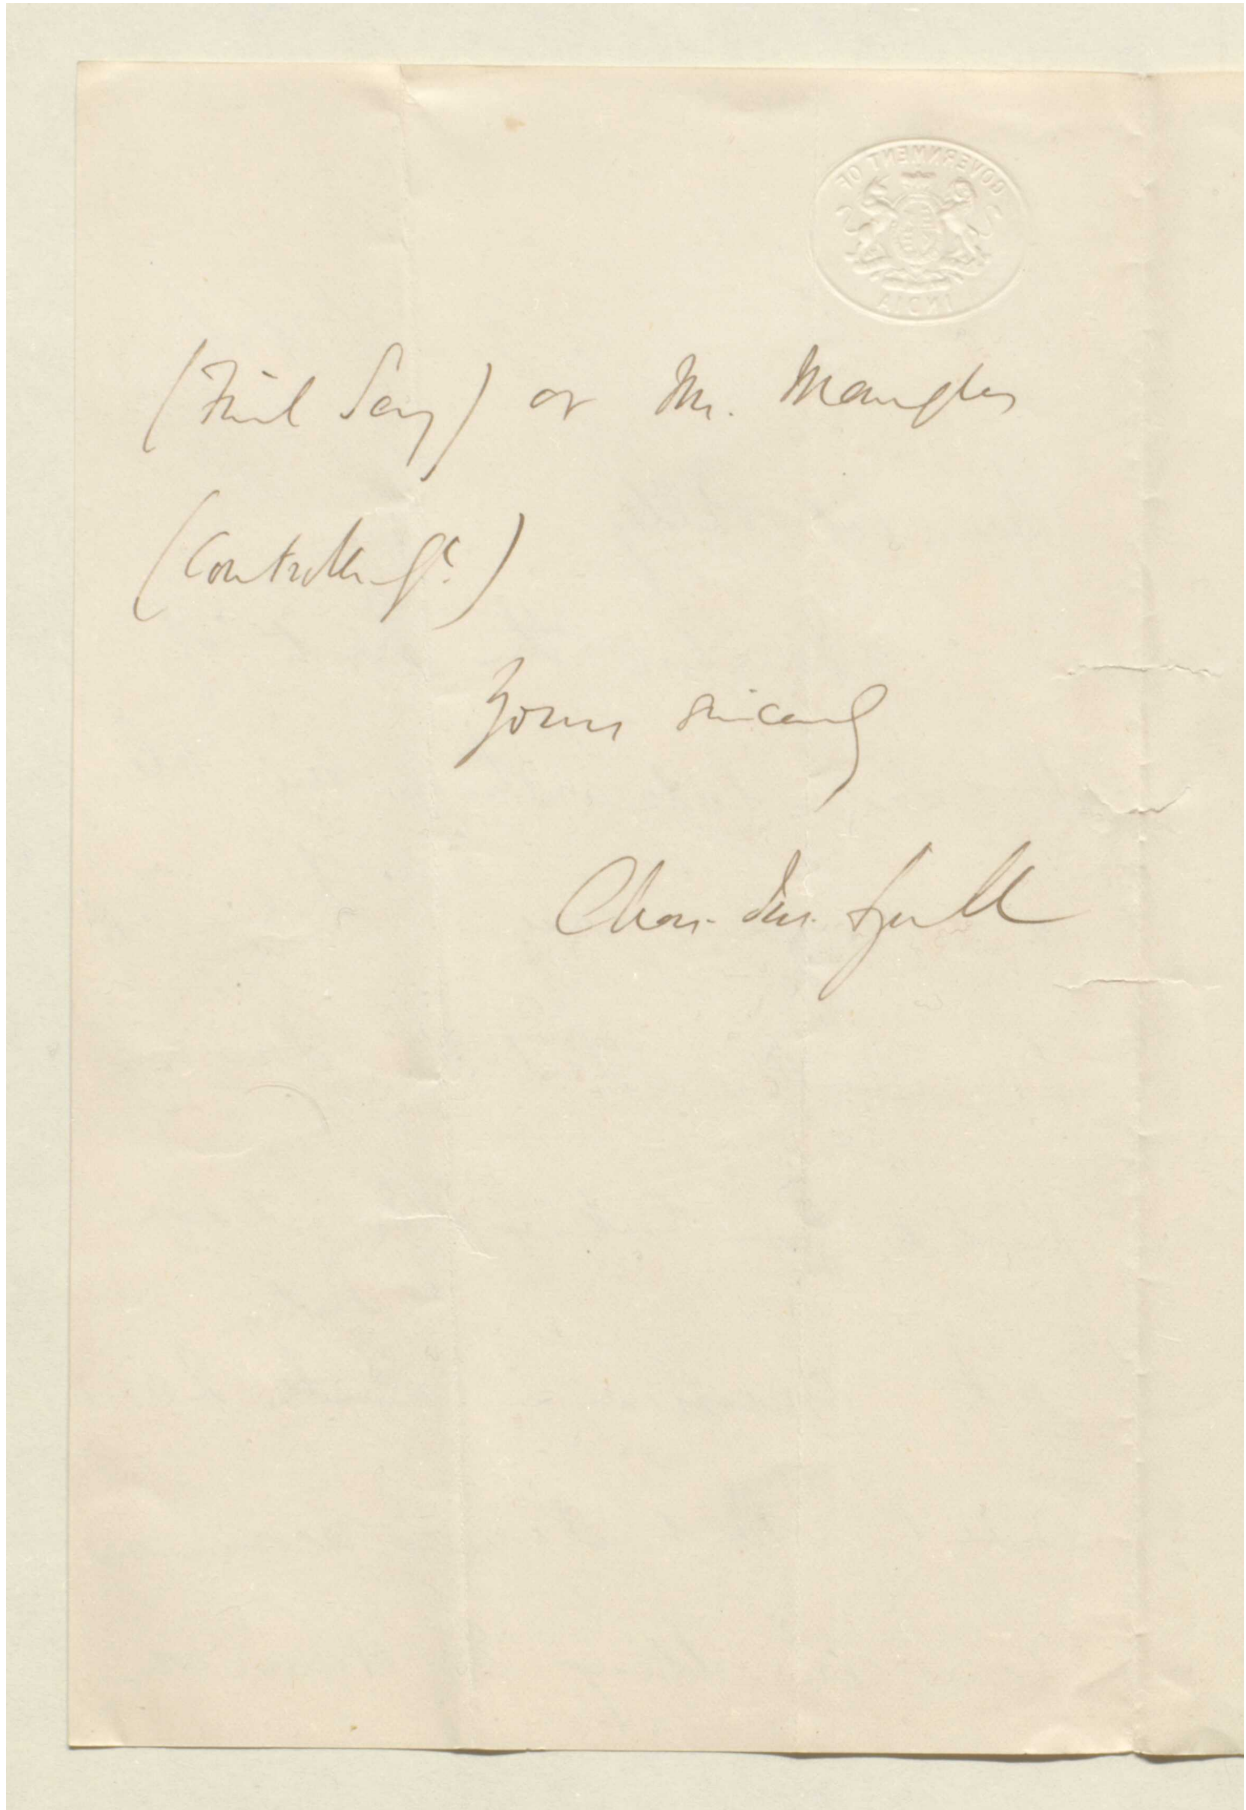 GOVERNMENT OF
INDIA
(Finl Secy) or Mr. Mangles
(Controller Gl.)
Yours sincerely
Chas.